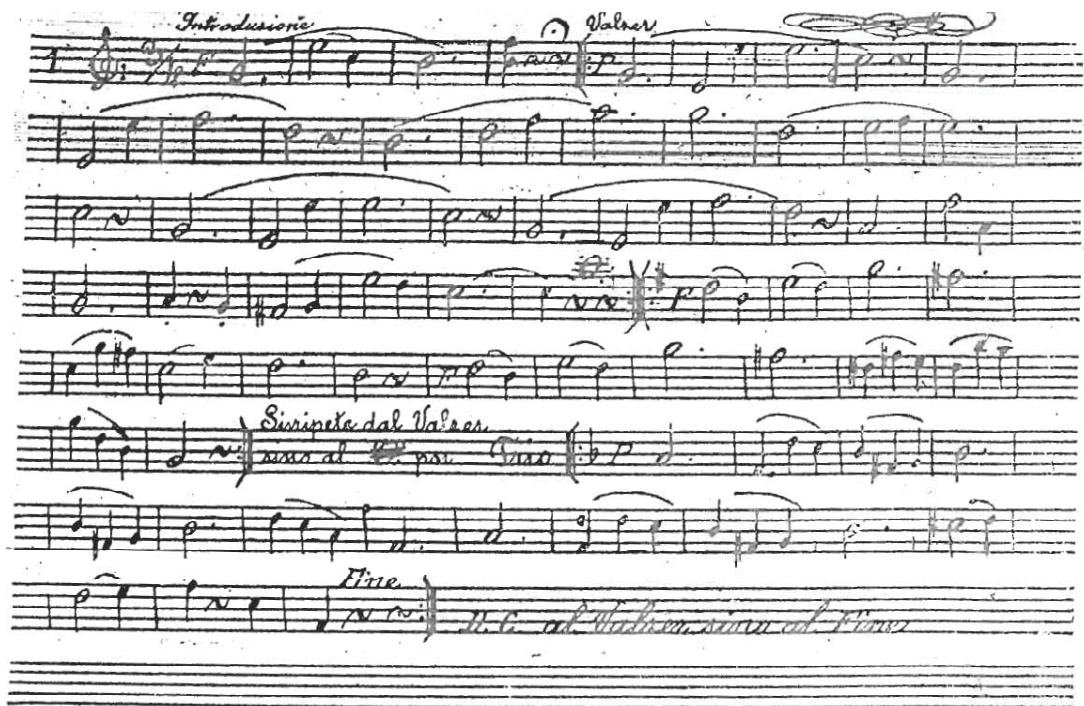 Introduzione Valzer
1 3/4 P P
Si ripete dal Valzer
sino al poi Trio P
Fine
D. C. al Valzer sino al Fine